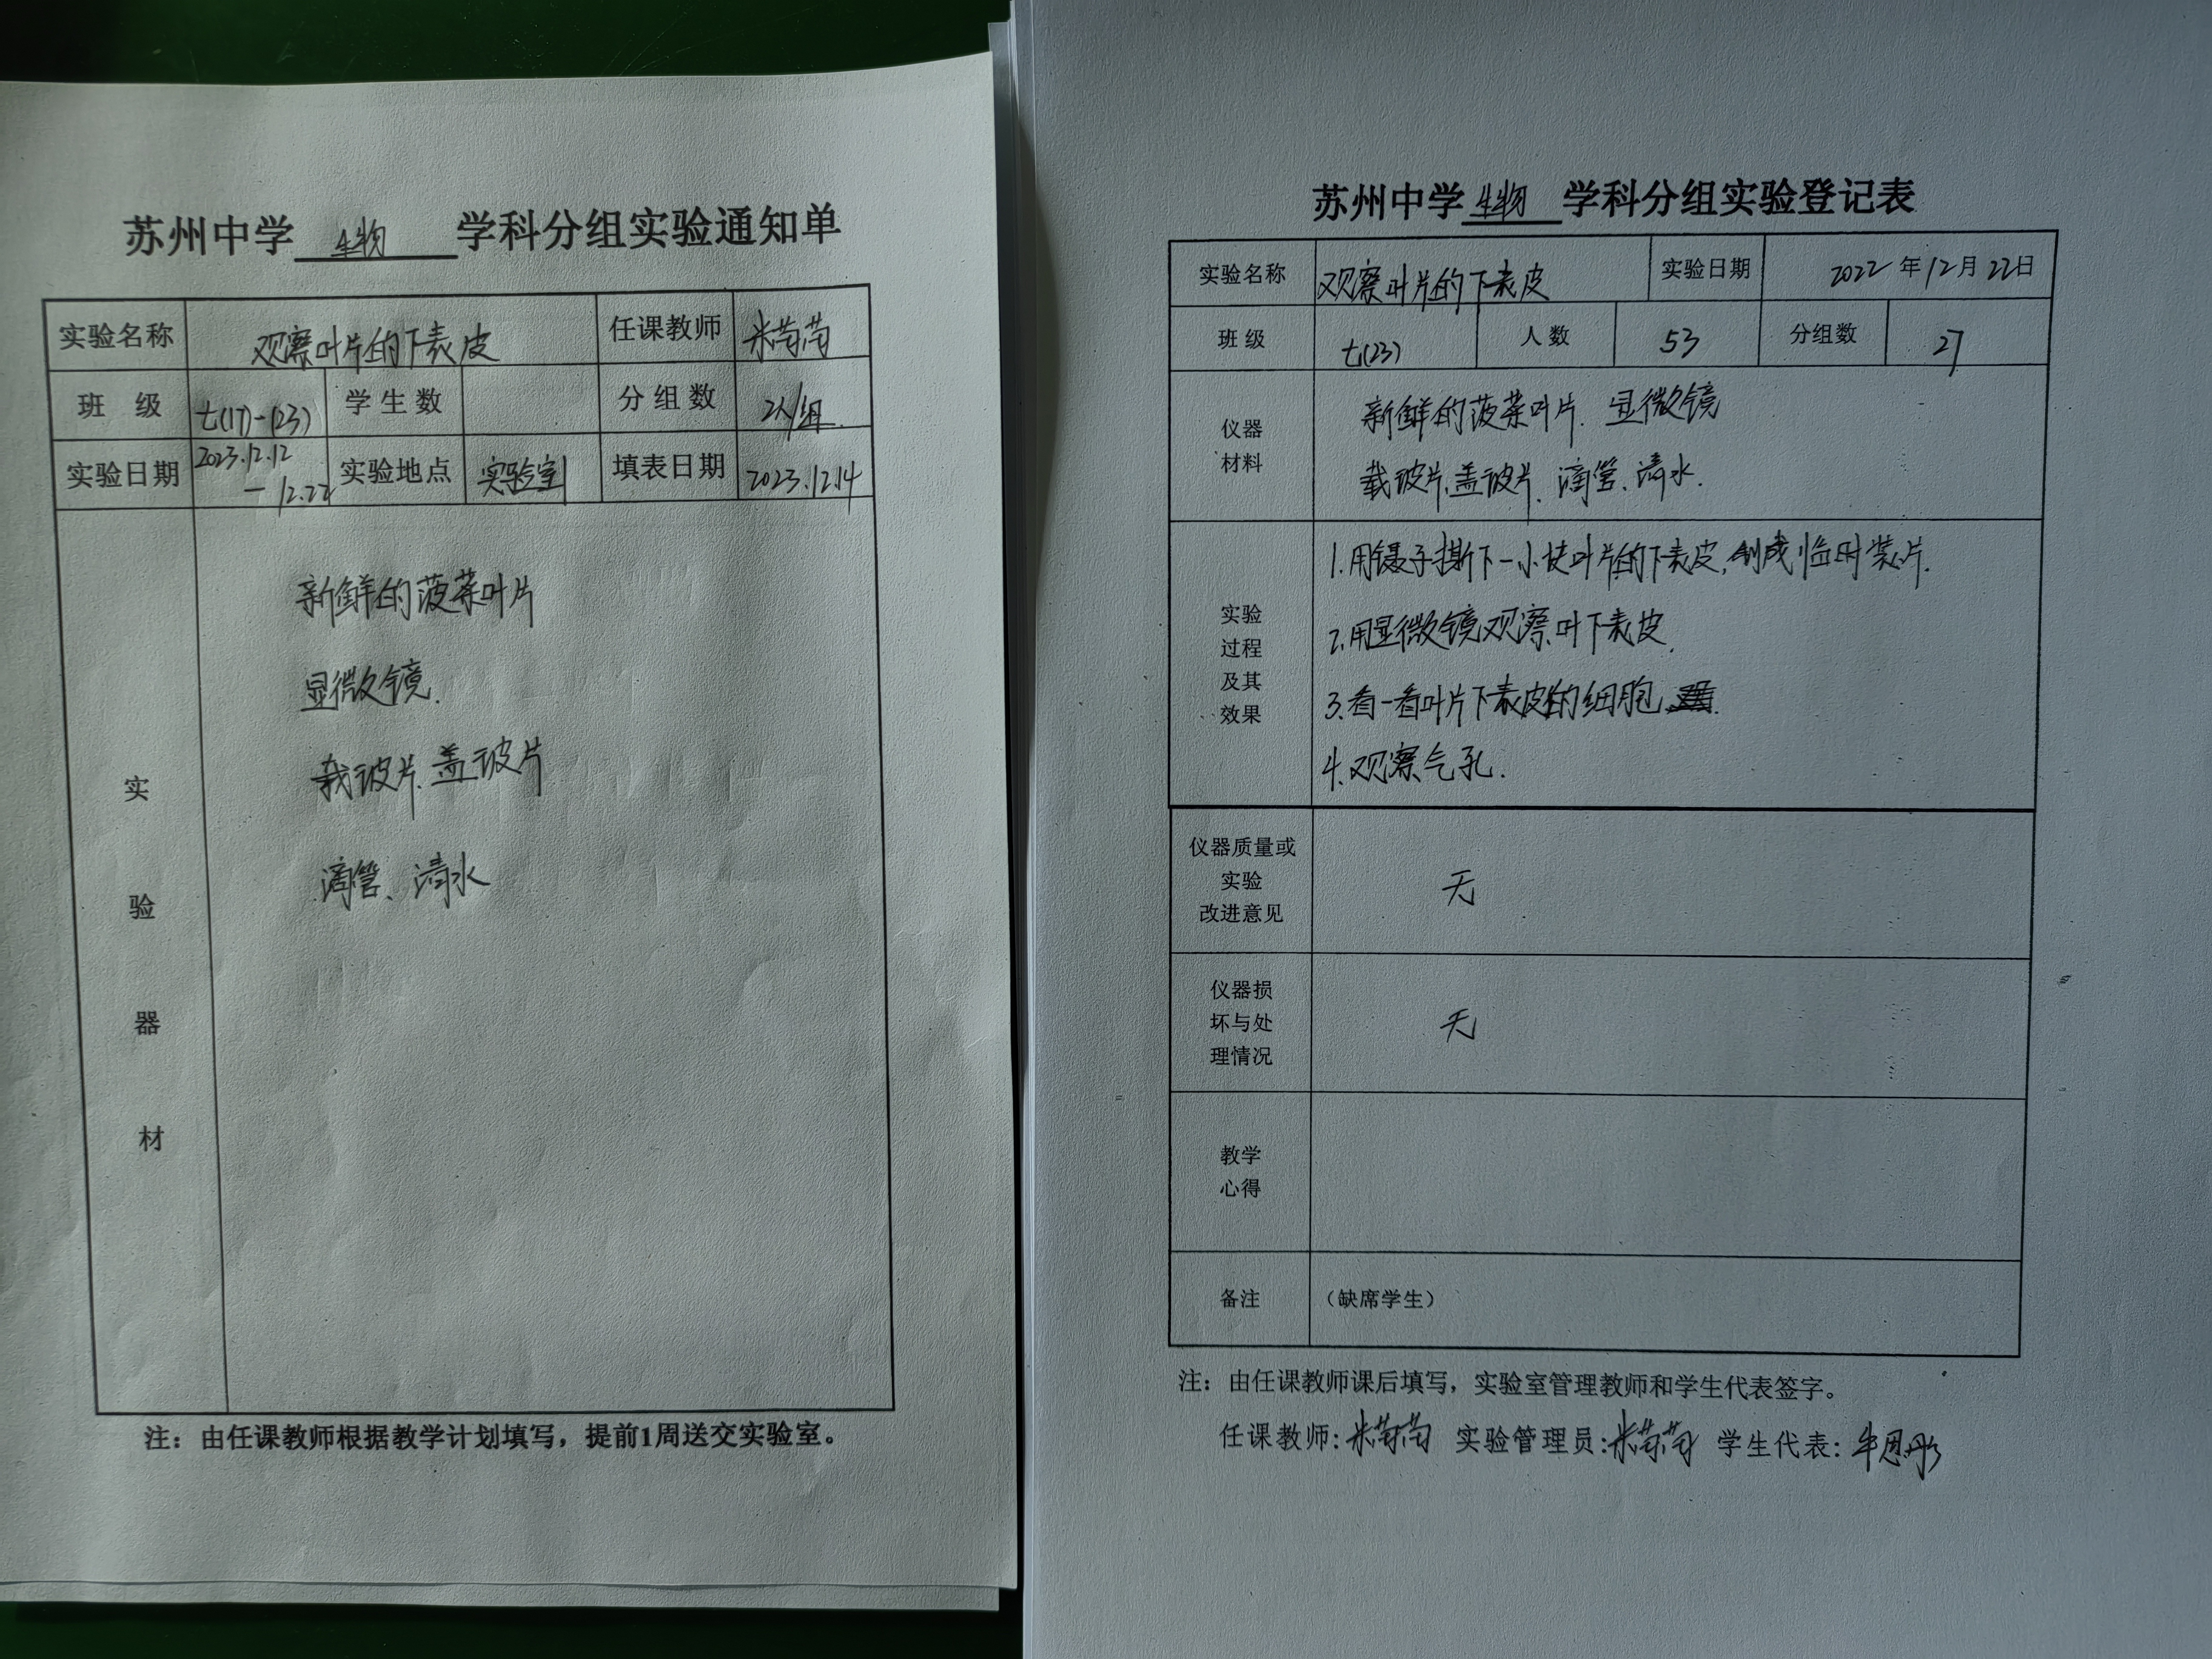 苏州中学 生物 学科分组实验通知单
实验名称 观察叶片的下表皮 任课教师 米苗苗
班 级 七(17)-(23) 学生数 分组数 2人/组.
实验日期 2023.12.12 — 12.22 实验地点 实验室 填表日期 2023.12.14
实验器材
新鲜的菠菜叶片
显微镜.
载玻片.盖玻片
滴管、清水
注：由任课教师根据教学计划填写，提前1周送交实验室。
苏州中学 生物 学科分组实验登记表
实验名称 观察叶片的下表皮 实验日期 2022 年 12 月 22 日
班 级 七(23) 人 数 53 分组数 27
仪器
材料
新鲜的菠菜叶片. 显微镜
载玻片.盖玻片、滴管、清水.
实验
过程
及其
效果
1.用镊子撕下一小块叶片的下表皮,制成临时装片.
2.用显微镜观察叶下表皮.
3.看一看叶片下表皮的细胞
4.观察气孔.
仪器质量或
实验
改进意见
无
仪器损
坏与处
理情况
无
教学
心得
备注 （缺席学生）
注：由任课教师课后填写，实验室管理教师和学生代表签字。
任课教师: 米苗苗 实验管理员: 米苗苗 学生代表: 牟恩彤